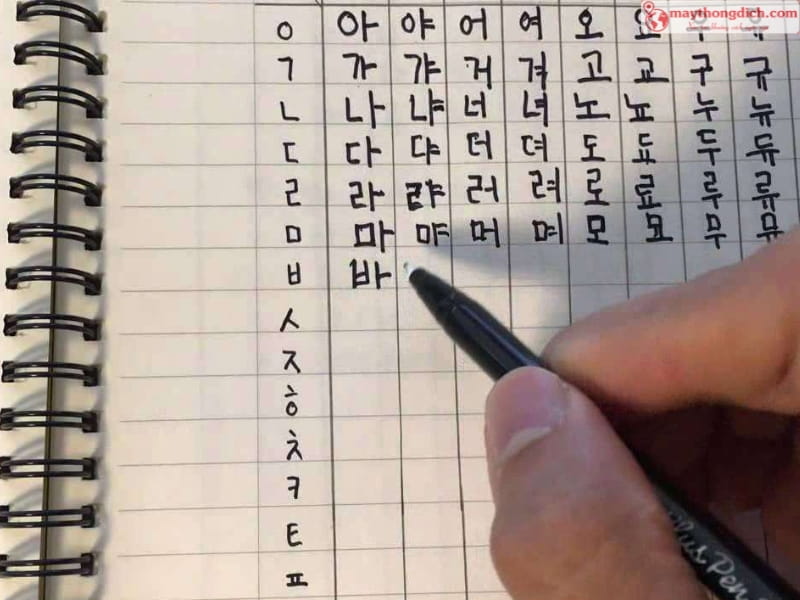 maythongdich.com
ㅇ 아 야 어 여 오 요
ㄱ 가 갸 거 겨 고 교 구 규
ㄴ 나 냐 너 녀 노 뇨 누 뉴
ㄷ 다 댜 더 뎌 도 됴 두 듀
ㄹ 라 랴 러 려 로 료 루 류
ㅁ 마 먀 머 며 모 묘 무 뮤
ㅂ 바
ㅅ
ㅈ
ㅎ
ㅊ
ㅋ
ㅌ
ㅍ
Plus Pen